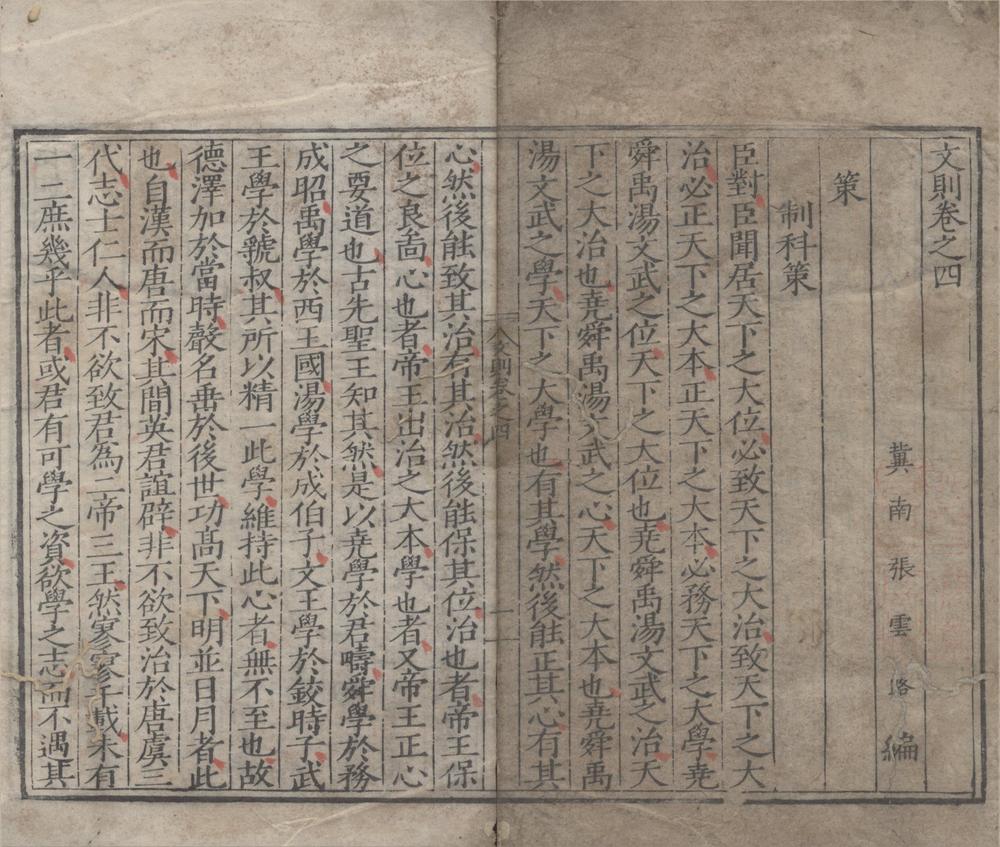 文則卷之四
冀南張雲路編
策
制科策
臣對臣聞居天下之大位必致天下之大治致天下之大
治必正天下之大本正天下之大本必務天下之大學堯
舜禹湯文武之位天下之大位也堯舜禹湯文武之治天
下之大治也堯舜禹湯文武之心天下之大本也堯舜禹
湯文武之學天下之大學也有其學然後能正其心有其
文則卷之四
一
心然後能致其治有其治然後能保其位治也者帝王保
位之良啚心也者帝王出治之大本學也者又帝王正心
之要道也古先聖王知其然是以堯學於君疇舜學於務
成昭禹學於西王國湯學於成伯子文王學於鉸時子武
王學於虢叔其所以精一此學維持此心者無不至也故
德澤加於當時聲名垂於後世功高天下明並日月者此
也自漢而唐而宋其間英君誼辟非不欲致治於唐虞三
代志士仁人非不欲致君為二帝三王然寥寥千載未有
一二庶幾乎此者或君有可學之資欲學之志而不遇其